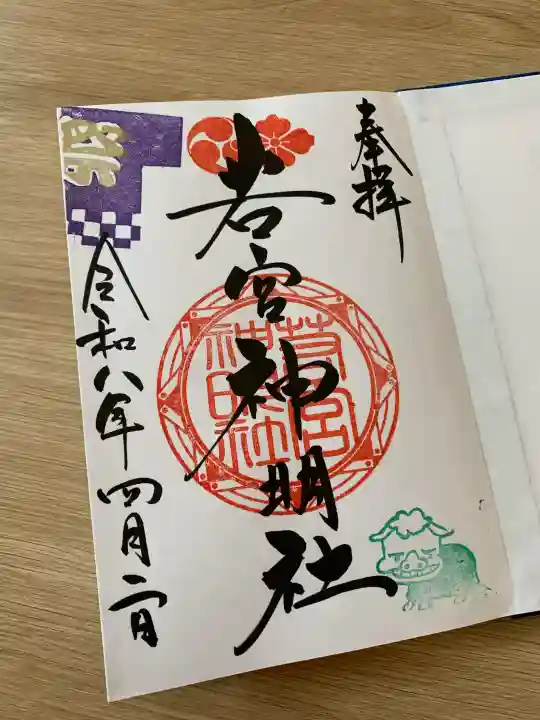 奉拝
若宮神明社
若宮神明社
令和八年四月二日
祭